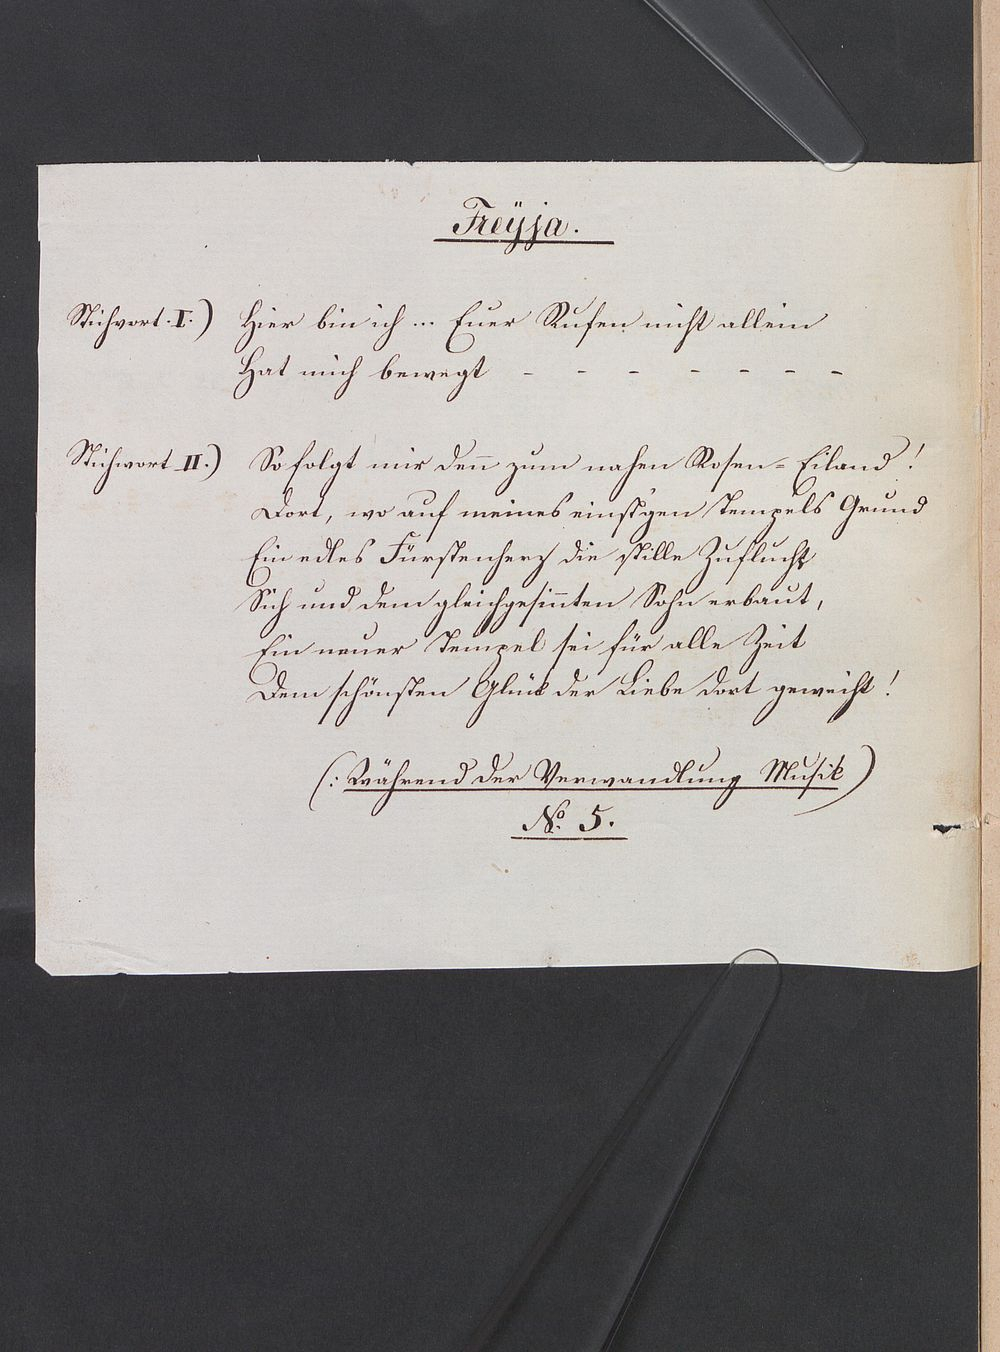 Freÿja.
Stichwort. I.) Hier bin ich ... Euer Rufen nicht allein
Hat mich bewegt - - - - - - - -
Stichwort II.) So folgt mir den̅ zum nahen Rosen=Eiland!
Dort, wo auf meines einst'gen Tempels Grund
Ein edles Fürstenherz die stille Zuflucht
Sich und dem gleichgesin̅ten Sohn erbaut,
Ein neuer Tempel sei für alle Zeit
Dem schönsten Glück der Liebe dort geweiht!
(: Während der Verwandlung Musik)
No. 5.